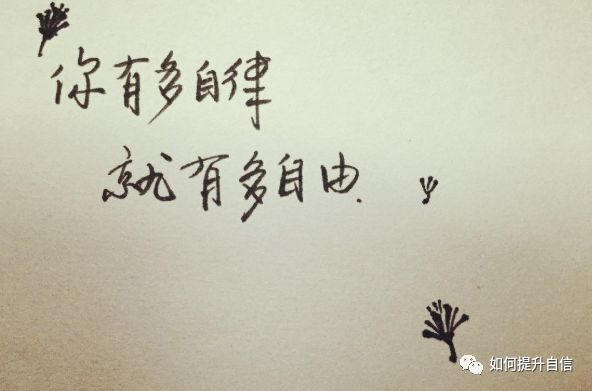 你有多自律
就有多自由.
如何提升自信